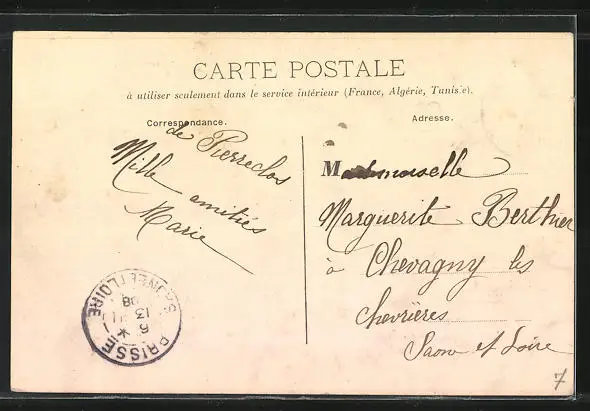 CARTE POSTALE
à utiliser seulement dans le service intérieur (France, Algérie, Tunisie).
Correspondance.
Adresse.
de Pierreclos
Mille amitiés
Marie
Mademoiselle
Marguerite Berthier
à Chevagny les
chevrières
Saone et Loire
PRISSÉ
SAONE ET LOIRE
13
08
7